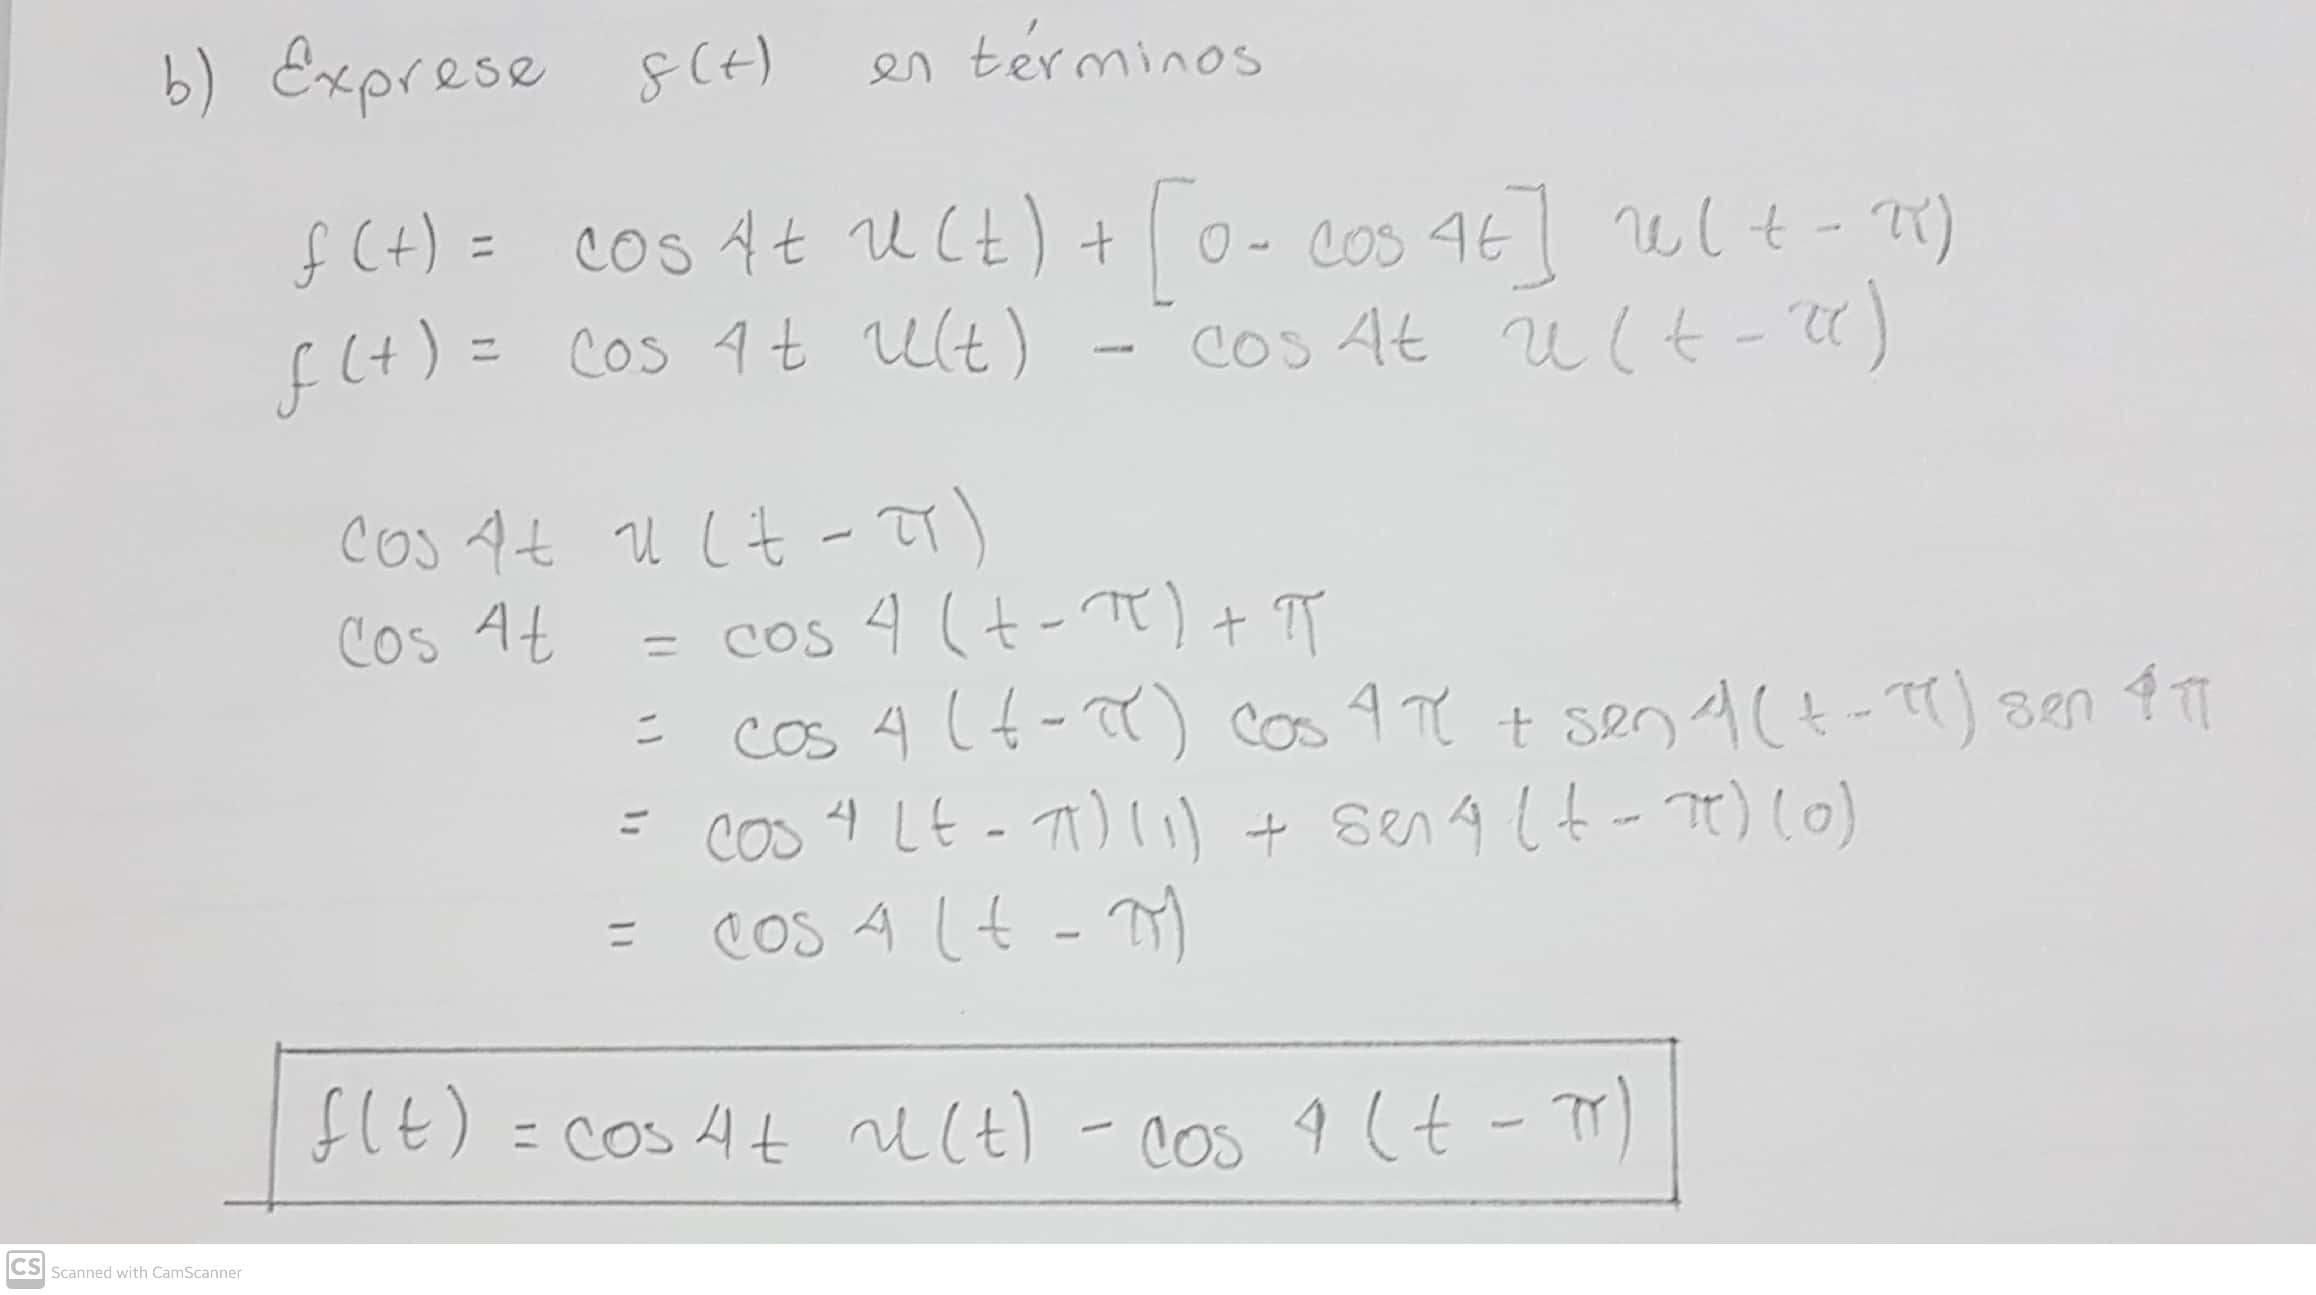 b) Exprese f(t) en términos
f(t) = cos 4t u(t) + [0 - cos 4t] u(t - π)
f(t) = cos 4t u(t) - cos 4t u(t - π)
cos 4t u(t - π)
cos 4t = cos 4(t - π) + π
= cos 4(t - π) cos 4π + sen 4(t - π) sen 4π
= cos 4(t - π)(1) + sen 4(t - π)(0)
= cos 4(t - π)
f(t) = cos 4t u(t) - cos 4(t - π)
CS Scanned with CamScanner